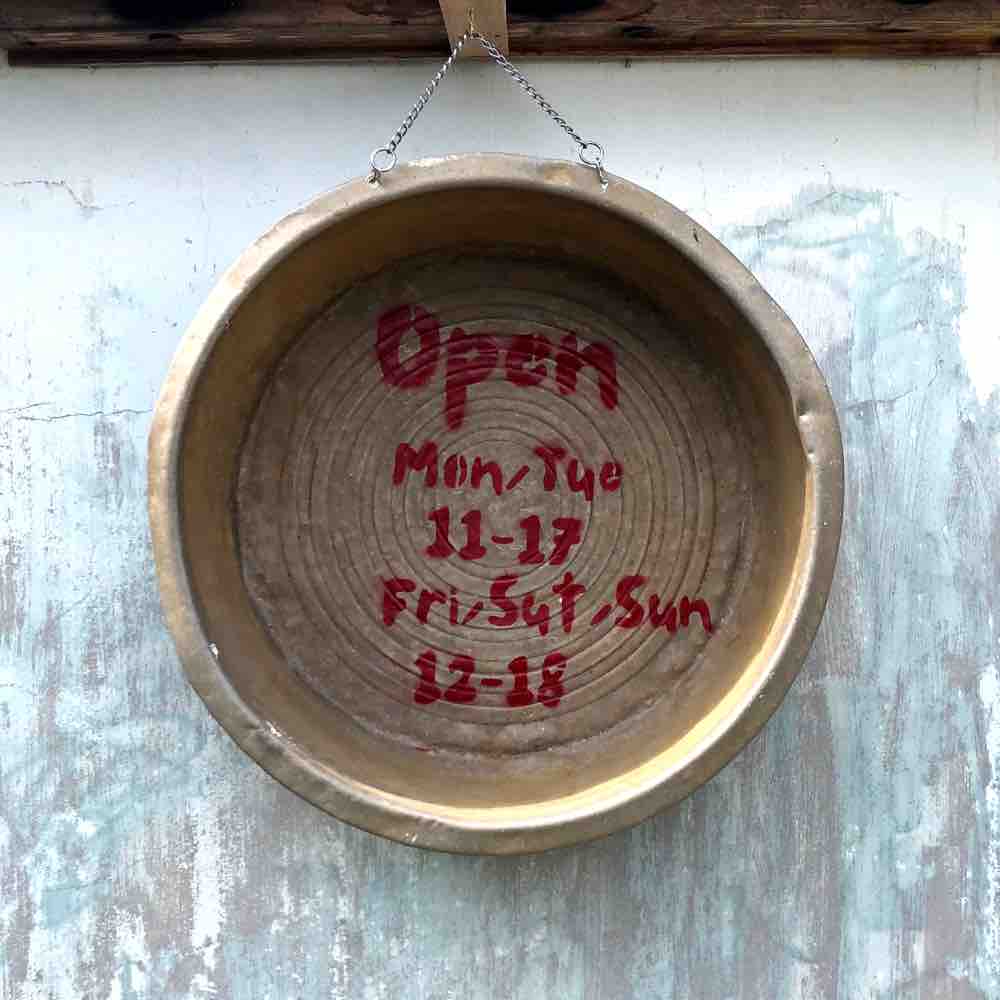 Open
Mon/Tue
11-17
Fri/Sat/Sun
12-18